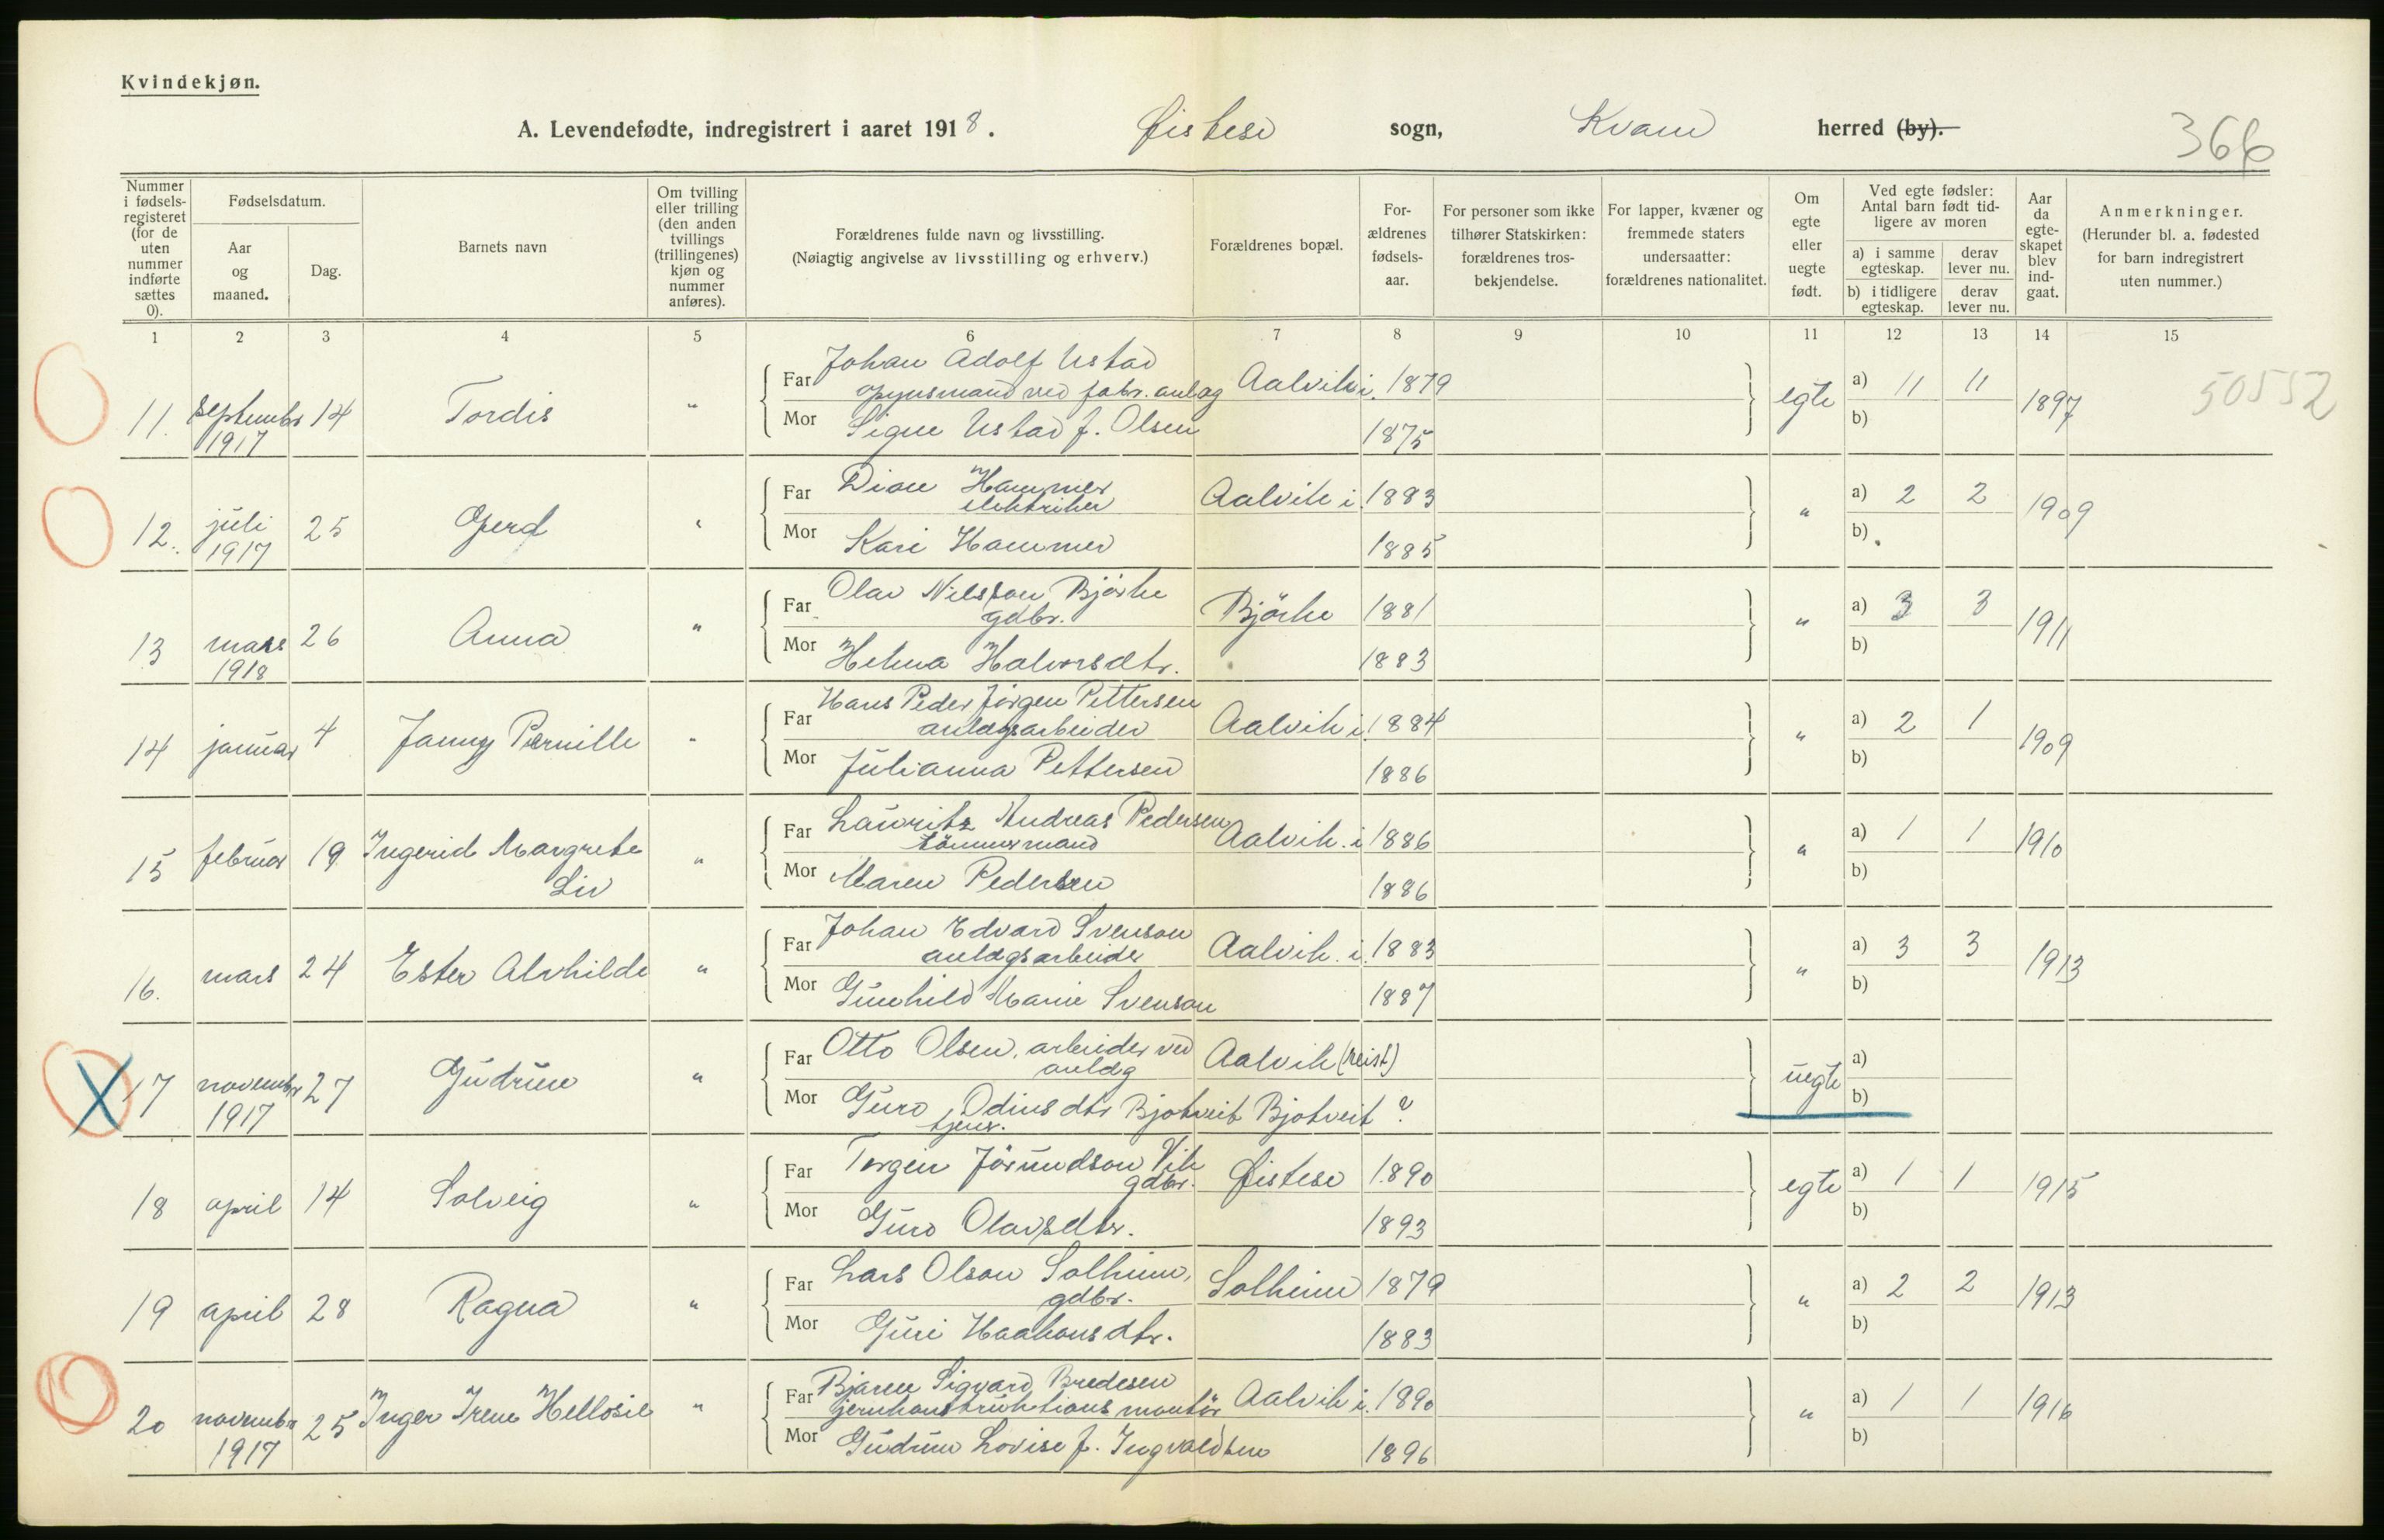 Kvindekjøn.
A. Levendefødte, indregistrert i aaret 1918. Øistese sogn, Kvam herred (by). 366
Nummer i fødselsregisteret (for de uten nummer indførte sættes 0).
Fødselsdatum.
Aar og maaned.
Dag.
Barnets navn
Om tvilling eller trilling (den anden tvillings (trillingenes) kjøn og nummer anføres).
Forældrenes fulde navn og livsstilling.
(Nøiagtig angivelse av livsstilling og erhverv.)
Forældrenes bopæl.
Forældrenes fødselsaar.
For personer som ikke tilhører Statskirken: forældrenes trosbekjendelse.
For lapper, kvæner og fremmede staters undersaatter: forældrenes nationalitet.
Om egte eller uegte født.
Ved egte fødsler: Antal barn født tidligere av moren
a) i samme egteskap. derav lever nu.
b) i tidligere egteskap. derav lever nu.
Aar da egteskapet blev indgaat.
Anmerkninger.
(Herunder bl. a. fødested for barn indregistrert uten nummer.)
1 2 3 4 5 6 7 8 9 10 11 12 13 14 15
Far Johan Adolf Ustad
opsynsmand ved fabr. anlæg Aalvik i. 1879
11. september 1917 14 Tordis " egte a) 11 11 b) 1897 50552
Mor Signe Ustad f. Olsen 1875
Far Hammer
elektriker Aalvik i. 1883
12. juli 1917 25 Gjerd " " a) 2 2 b) 1909
Mor Kari Hammer 1885
Far Olav Nilsson Bjørke
gdbr. Bjørke 1881
13 mars 1918 26 Anna " " a) 3 3 b) 1911
Mor Helma Halvorsdtr. 1883
Far Hans Peder Jørgen Pettersen
anlægsarbeider Aalvik i. 1884
14 januar 4 Janny Pernille " " a) 2 1 b) 1909
Mor Julianna Pettersen 1886
Far Lauritz Andreas Pedersen
tømmermand Aalvik. i 1886
15 februar 19 Ingerid Margrete Liv " " a) 1 1 b) 1910
Mor Maren Pedersen 1886
Far Johan Edvard Svenson
anlægsarbeider Aalvik. i. 1883
16. mars 24 Ester Alvhilde " " a) 3 3 b) 1913
Mor Gunhild Marie Svenson 1887
Far Otto Olsen, arbeider ved
anlæg Aalvik (reist)
17 november 1917 27 Gudrun " uegte a) b)
Mor Guro Odinsdtr Bjotveit Bjotveit ?
tjener.
Far Torgeir Jørundson Vik
gdbr. Øistese 1890
18 april 14 Solveig " egte a) 1 1 b) 1915
Mor Guro Olavsdtr. 1893
Far Lars Olson Solheim,
gdbr. Solheim 1879
19 april 28 Ragna " " a) 2 2 b) 1913
Mor Guri Haakonsdtr. 1883
Far Bjarne Sigvard Bredesen
jernkonstruktions montør Aalvik i. 1890
20 november 1917 25 Inger Irene " " a) 1 1 b) 1916
Mor Gudrun Lovise f. Ingvaldsen 1896